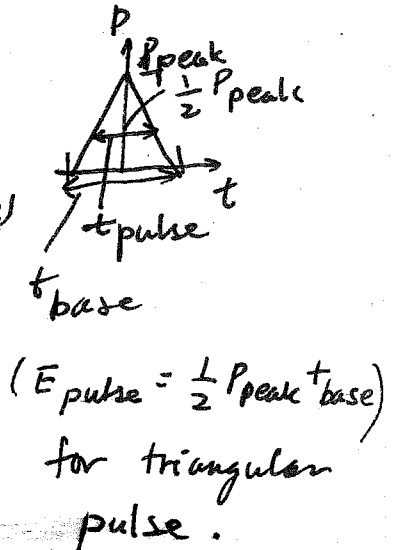 P
P_peak
1/2 P_peak
t
t_pulse
t_base
(E_pulse = 1/2 P_peak t_base)
for triangular
pulse.